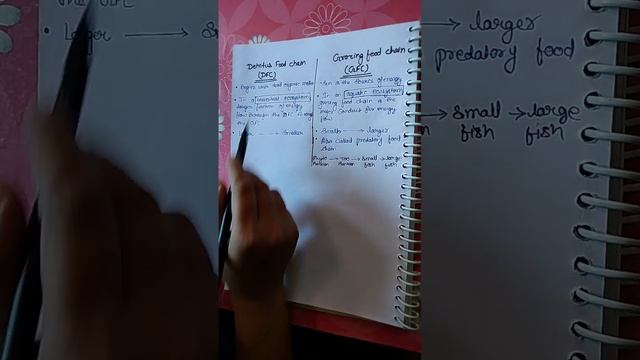 Detritus Food chain
(DFC)
• Begins with dead organic matter
• In a terrestrial ecosystem
larger fraction of energy
flows through the DFC than
the GFC
→ Smaller
Grazing food chain
(GFC)
• Sun is the source of energy
• In an aquatic ecosystem
grazing food chain is the
major conduit for energy
flow
• Smaller → larger
• Also called predatory food
chain
Phyto → Zoo → Small → large
Plankton Plankton fish fish
• Larger →
→ larger
predatory food
→ small → large
fish fish